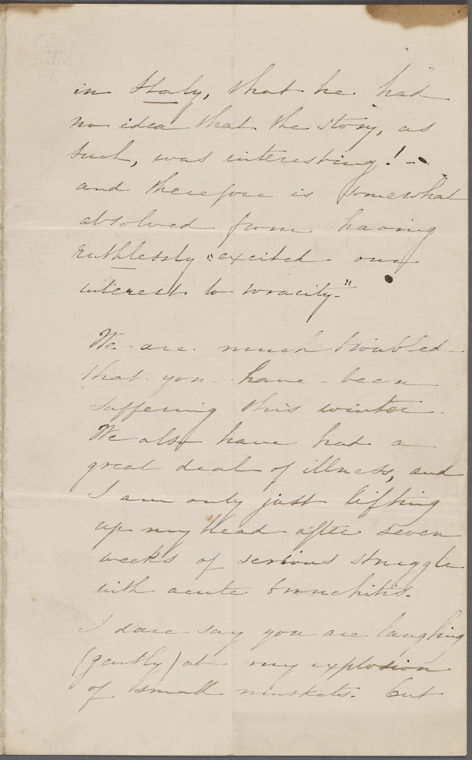 in Italy, that he had
no idea that the story, as
such, was interesting! -
and therefore is somewhat
absolved from having
ruthlessly "excited our
interest to voracity."
We are much troubled
that you have been
suffering this winter.
We also have had a
great deal of illness, and
I am only just lifting
up my head after seven
weeks of serious struggle
with acute bronchitis.
I dare say you are laughing
(gently) at my explosion
of small muskets. But